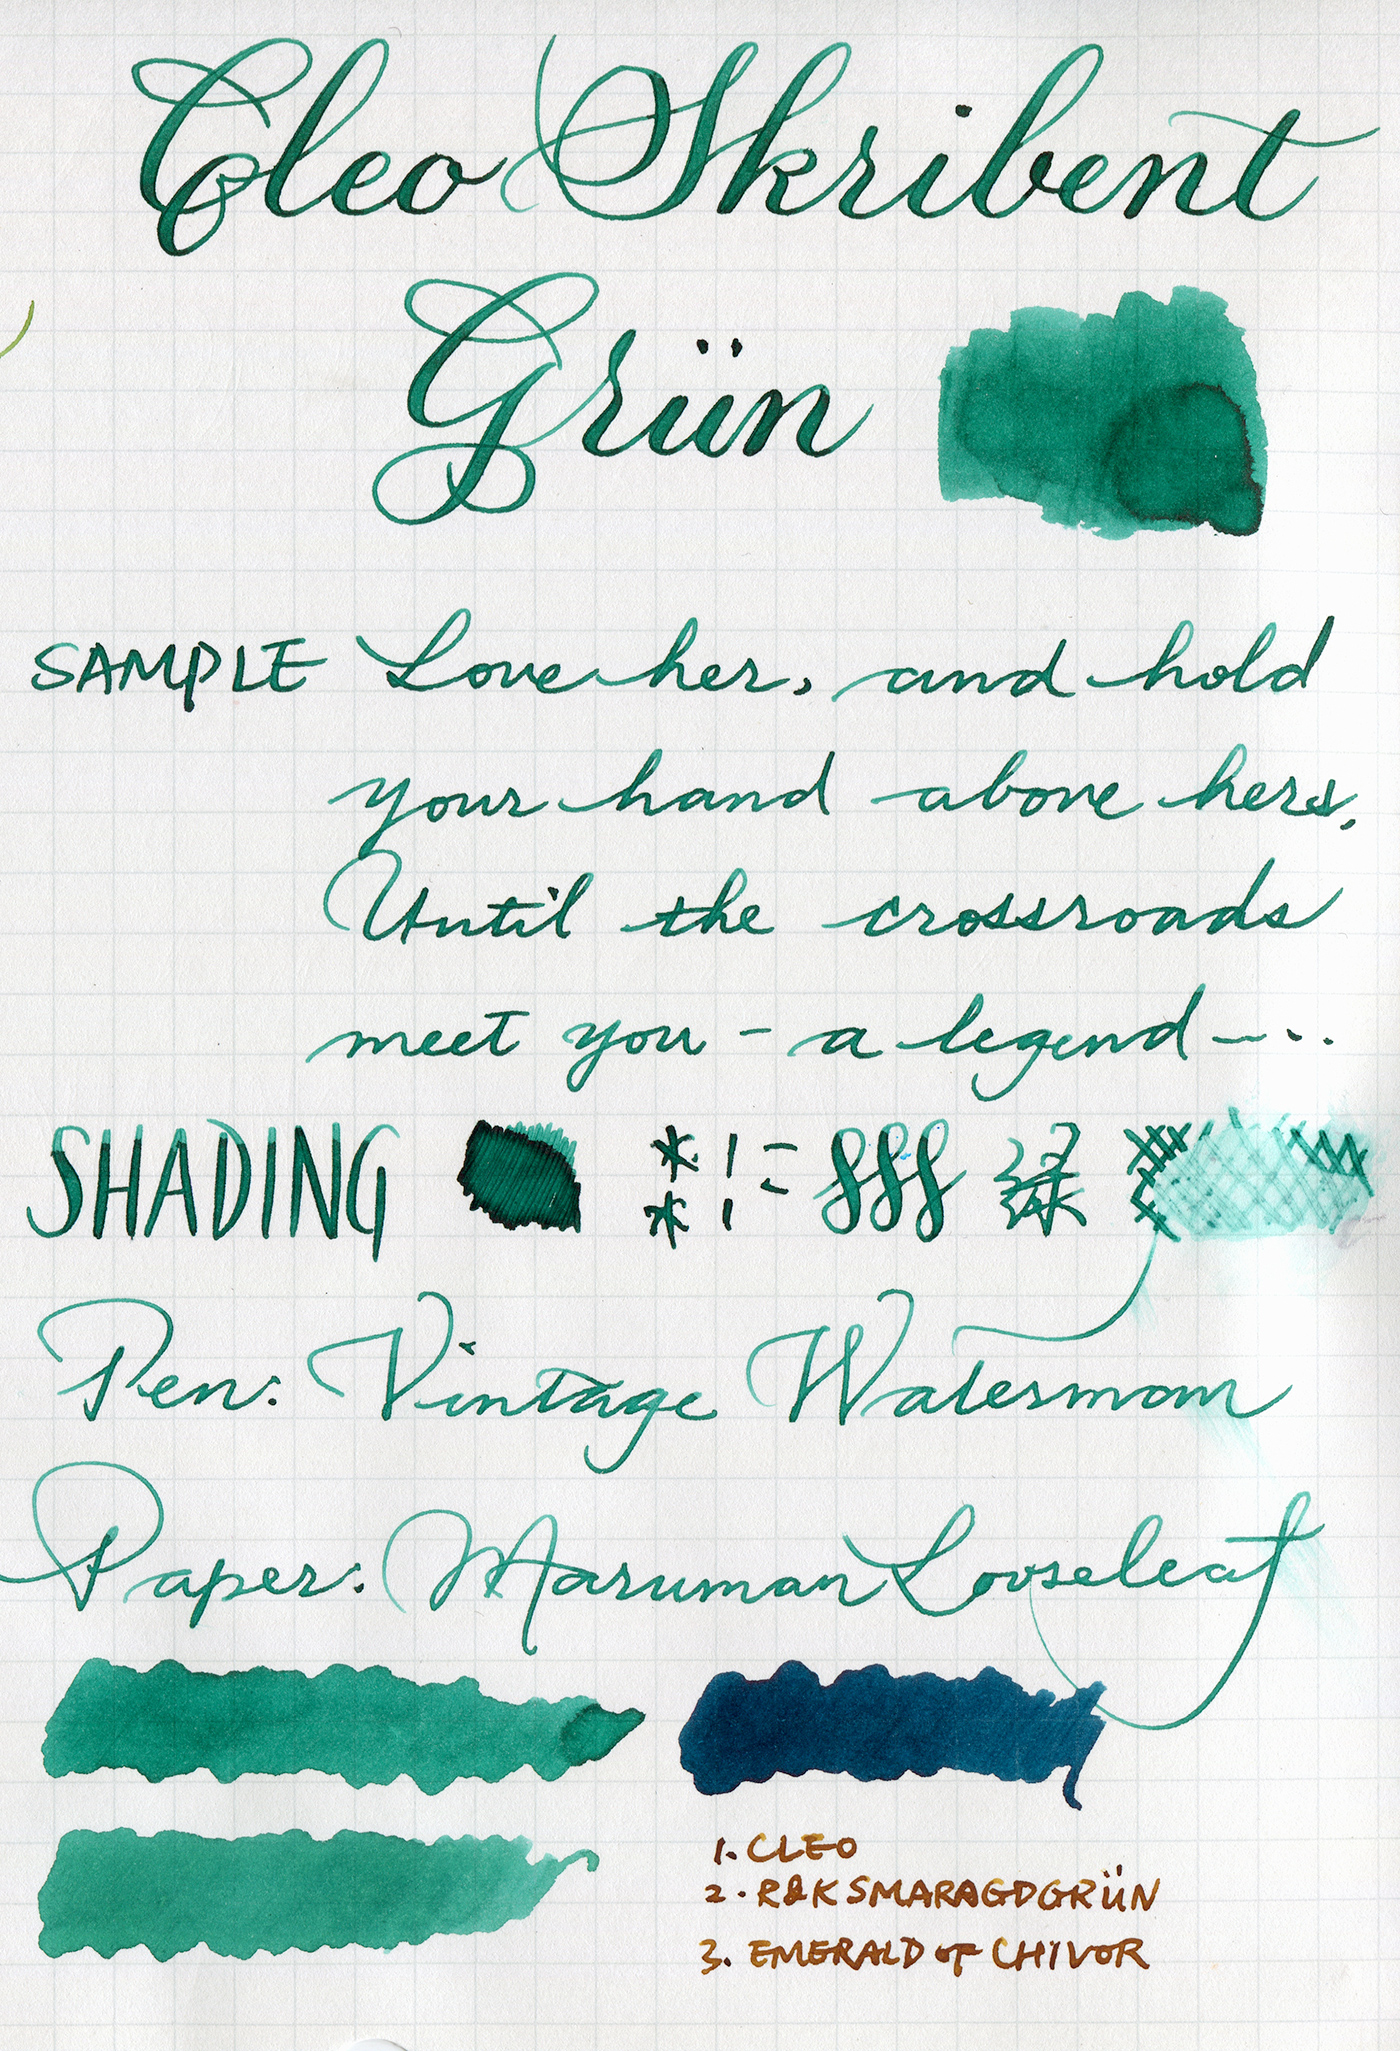 Cleo Skribent
Grün
SAMPLE Love her, and hold
your hand above hers.
Until the crossroads
meet you - a legend - - . .
SHADING * * ! ! = § § § 绿
Pen: Vintage Watermom
Paper: Maruman Looseleaf
1. CLEO
2. R&K SMARAGDGRÜN
3. EMERALD OF CHIVOR